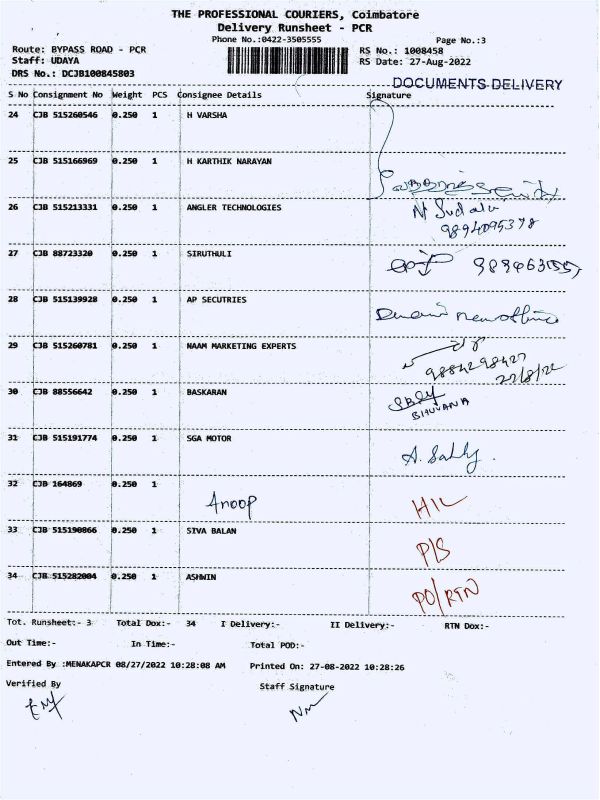 THE PROFESSIONAL COURIERS, Coimbatore
Delivery Runsheet - PCR
Phone No.:0422-3505555 Page No.:3
Route: BYPASS ROAD - PCR RS No.: 1008458
Staff: UDAYA RS Date: 27-Aug-2022
DRS No.: DCJB100845803
DOCUMENTS DELIVERY
S No Consignment No Weight PCS Consignee Details Signature
24 CJB 515260546 0.250 1 H VARSHA
25 CJB 515166969 0.250 1 H KARTHIK NARAYAN
26 CJB 515213331 0.250 1 ANGLER TECHNOLOGIES
9894095378
27 CJB 88723320 0.250 1 SIRUTHULI
28 CJB 515139928 0.250 1 AP SECUTRIES
new office
29 CJB 515260781 0.250 1 NAAM MARKETING EXPERTS
9884298427
27/8/22
30 CJB 88556642 0.250 1 BASKARAN
BHUVANA
31 CJB 515191774 0.250 1 SGA MOTOR
32 CJB 164869 0.250 1
Anoop H/L
33 CJB 515190866 0.250 1 SIVA BALAN
P/S
34 CJB 515282004 0.250 1 ASHWIN
PO/RTN
Tot. Runsheet:- 3 Total Dox:- 34 I Delivery:- II Delivery:- RTN Dox:-
Out Time:- In Time:- Total POD:-
Entered By :MENAKAPCR 08/27/2022 10:28:08 AM Printed On: 27-08-2022 10:28:26
Verified By Staff Signature